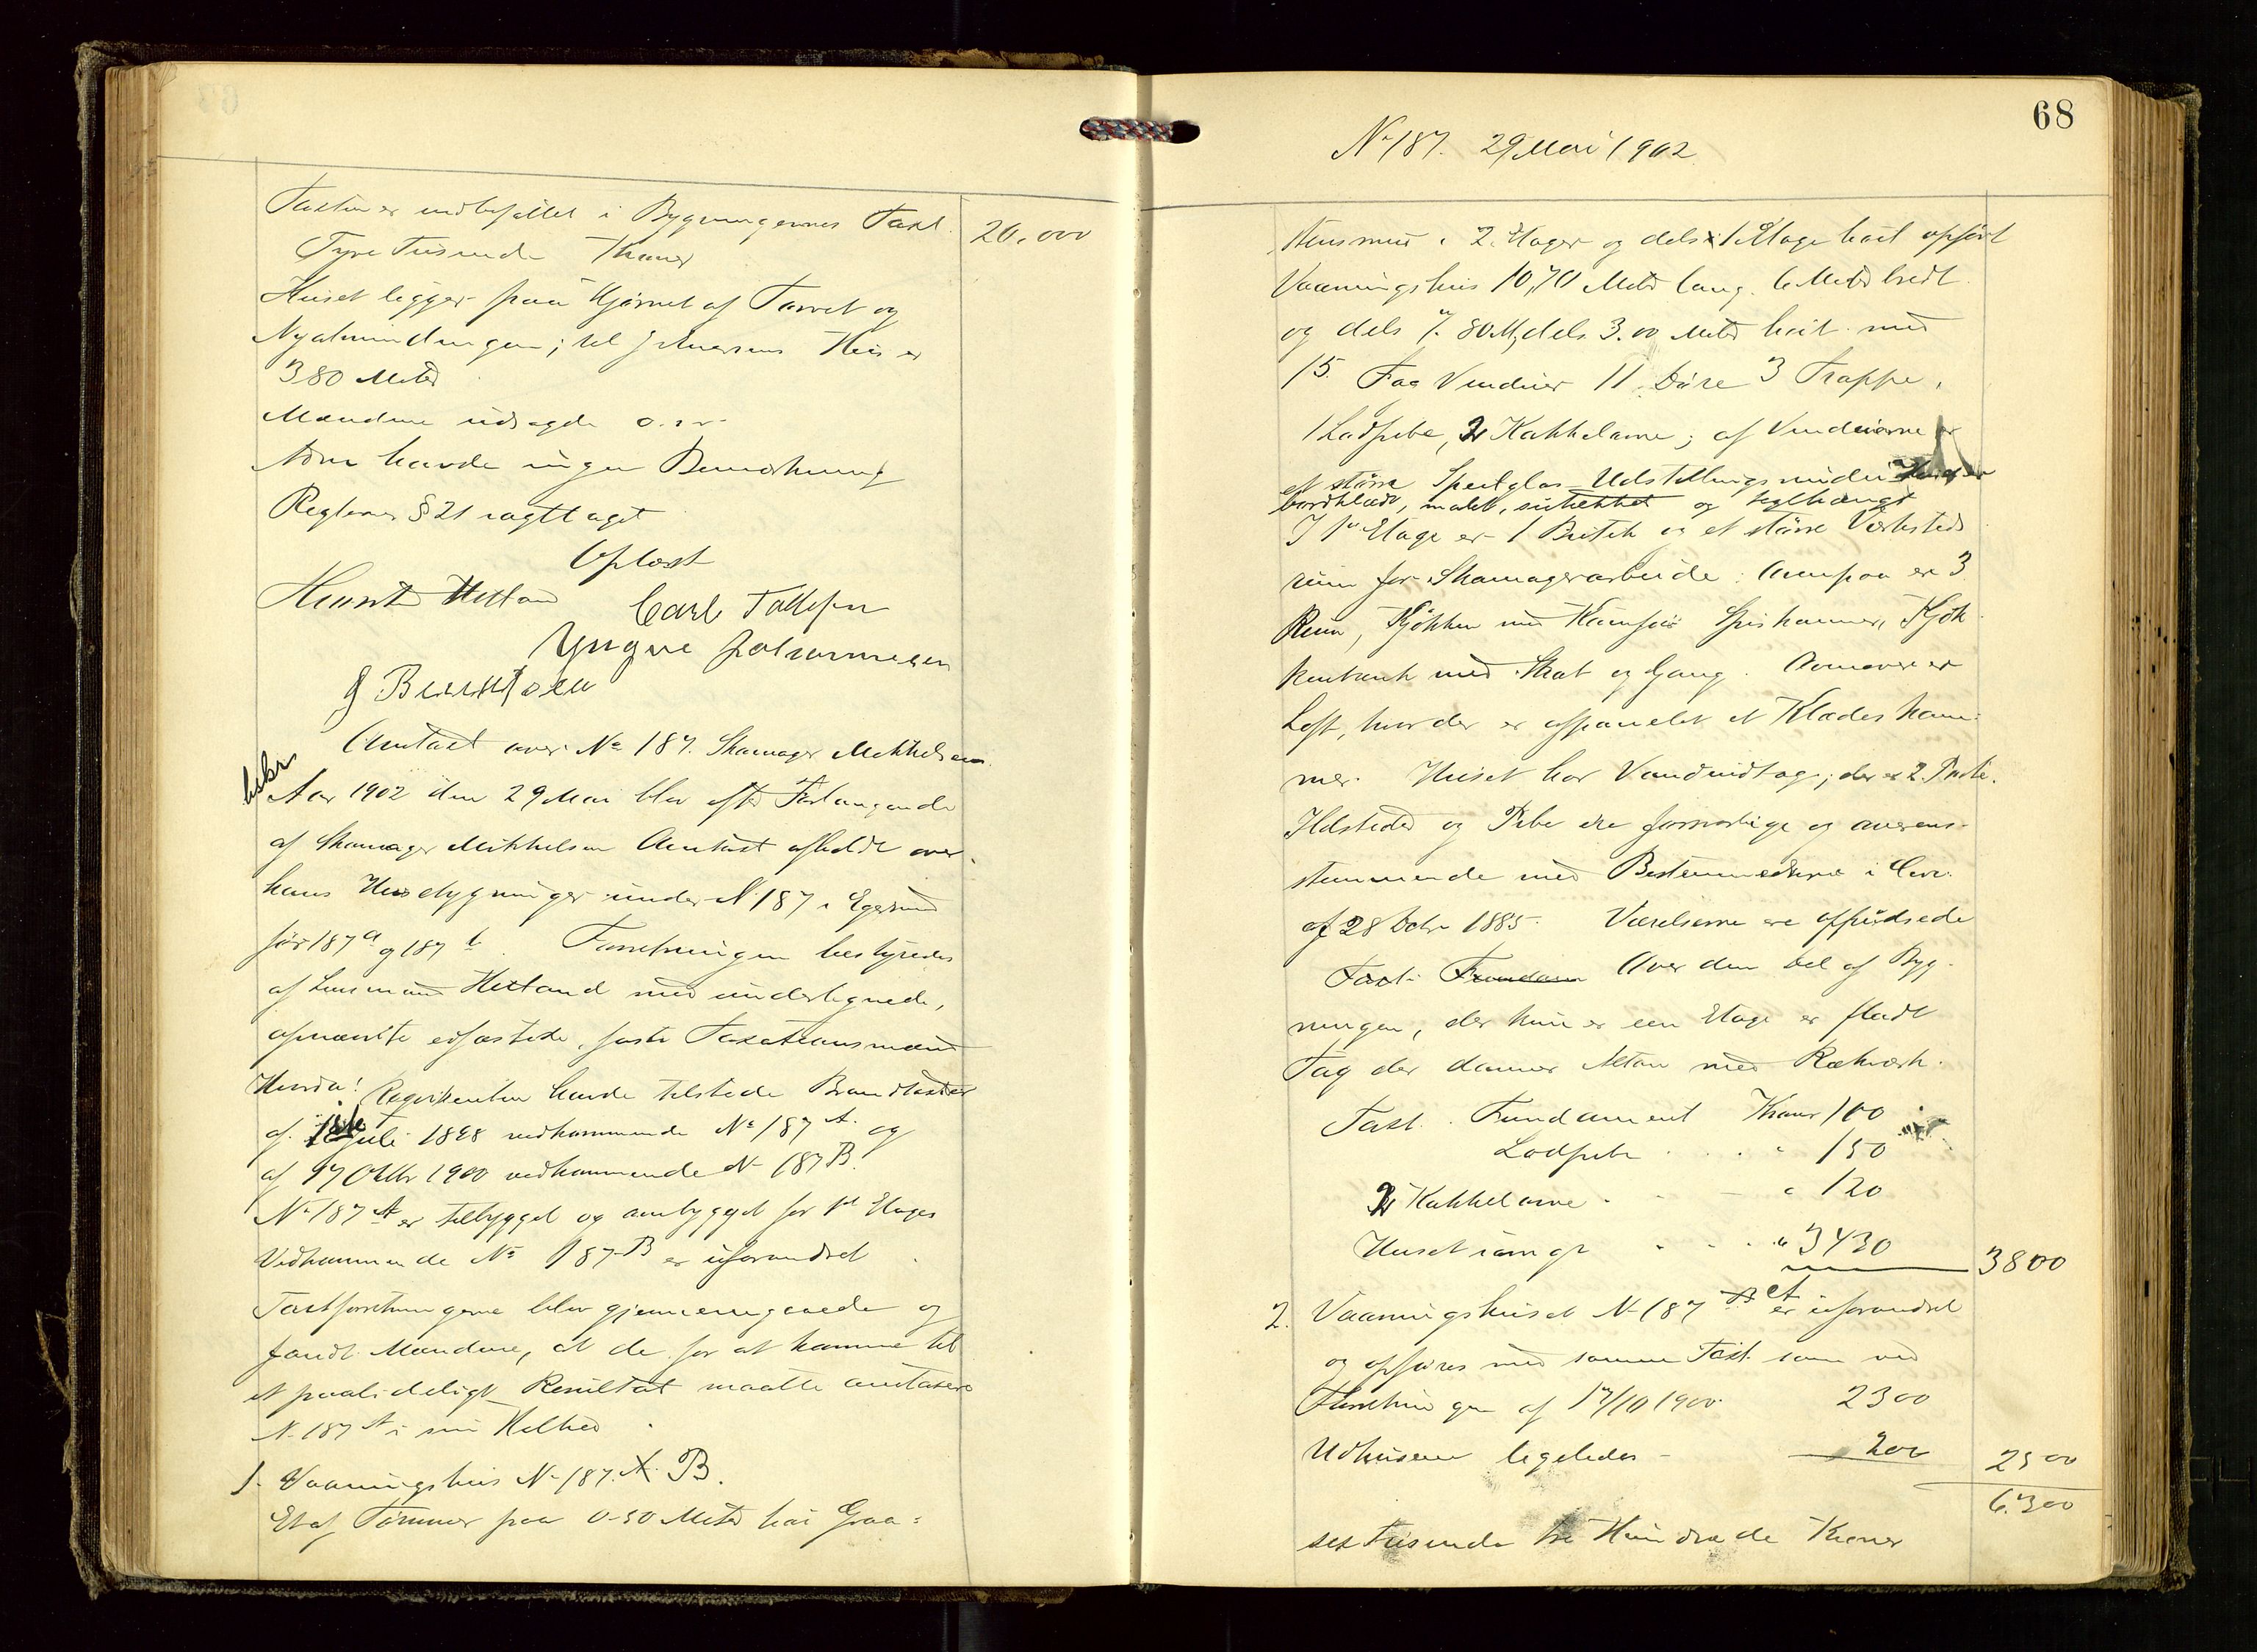 Taxten er indbefattet i Bygningernes Taxt. 20,000
Tyve Tusinde Kroner
Huset ligger paa Hjörnet af Torvet og
Nyalmindingen; til J Auensens Hus er
3 80 Meter
Mændene udsagde o.s.v.
Som havde ingen Bemærkning
Reglerne § 21 iagttaget
Oplæst
Hetland Carl Tollefsen
Yngve Johannesen
J Berentsen
Omtaxt over No 187. Skomager Mikkelsen.
bekr
Aar 1902 den 29 Mai blev efter Forlangende
af Skomager Mikkelsen Omtaxt afholdt over
hans Husebygninger under N 187 i Egersund
för 187 a og 187 b. Forretningen bestyredes
af Lensmand Hetland med undertegnede,
opnævnte edfæstede, faste Taxationsmænd
Hvorda! Reqvirenten havde tilstede Brandtaxter
af Juli 1898 vedkommende No 187 A. og
af 17 Oktbr 1900 vedkommende N 187 B.
No 187 A er tilbygget og ombygget for 1st Etages
Vedkommende No 187 B er uforandret
Taxtforretningerne blev gjennemgaaede og
fandt Mændene, at de for at komme til
et paalideligt Resultat maatte omtaxere
N. 187 A i sin Helhed.
1. Vaaningshus N 187. A. B.
Et af Tömmer paa 0-50 Meter höi Graa=
68
No 187. 29 Mai 1902
stensmur i 2 Etager og dels i 1 Etage höit opfört
Vaaningshus 10,70 Meter lang. 6 Meter bredt
og dels 7. 80 M, dels 3.00 Meter höit med
15. Fag Vinduer 11 Döre 3 Trappe,
1 Lodpibe, 2 Kakkelovne; af Vinduerne er
et större Speilglas Udstillingsvindu Huset er
bordklædt, malet, sutækket og teglhængt
I 1st Etage er 1 Butik og et större Værksteds
rum for Skomagerarbeide. Ovenpaa er 3
Rum, Kjökken med Komfur Spiskammer, Kjök
kenbænk med Skab og Gang. Ovenover er
Loft, hvor der er afpanelet et Klædeskam=
mer. Huset har Vandindtag; der er 2
Ildsteder og Pibe ere forsvarlige og overens-
stemmende med Bestemmelserne i Circ.
af 28 Octr 1885. Værelserne ere oppudsede
Taxt: Fundam Over den Del af Byg-
ningen, der kun er een Etage er fladt
Tag der danner Altan med Rækværk.
Taxt. Fundament Kroner 100
Lodpibe . . . " 150
2 Kakkelovne . . - " 120
Huset iövrigt . . . " 3430 3800
2. Vaaningshuset N 187 B A er uforandret
og opföres med samme Taxt. som ved
Forretningen af 17/10 1900. 2300
Udhusene ligeledes - 200 2500
6.300
sex Tusinde tre Hundrede Kroner